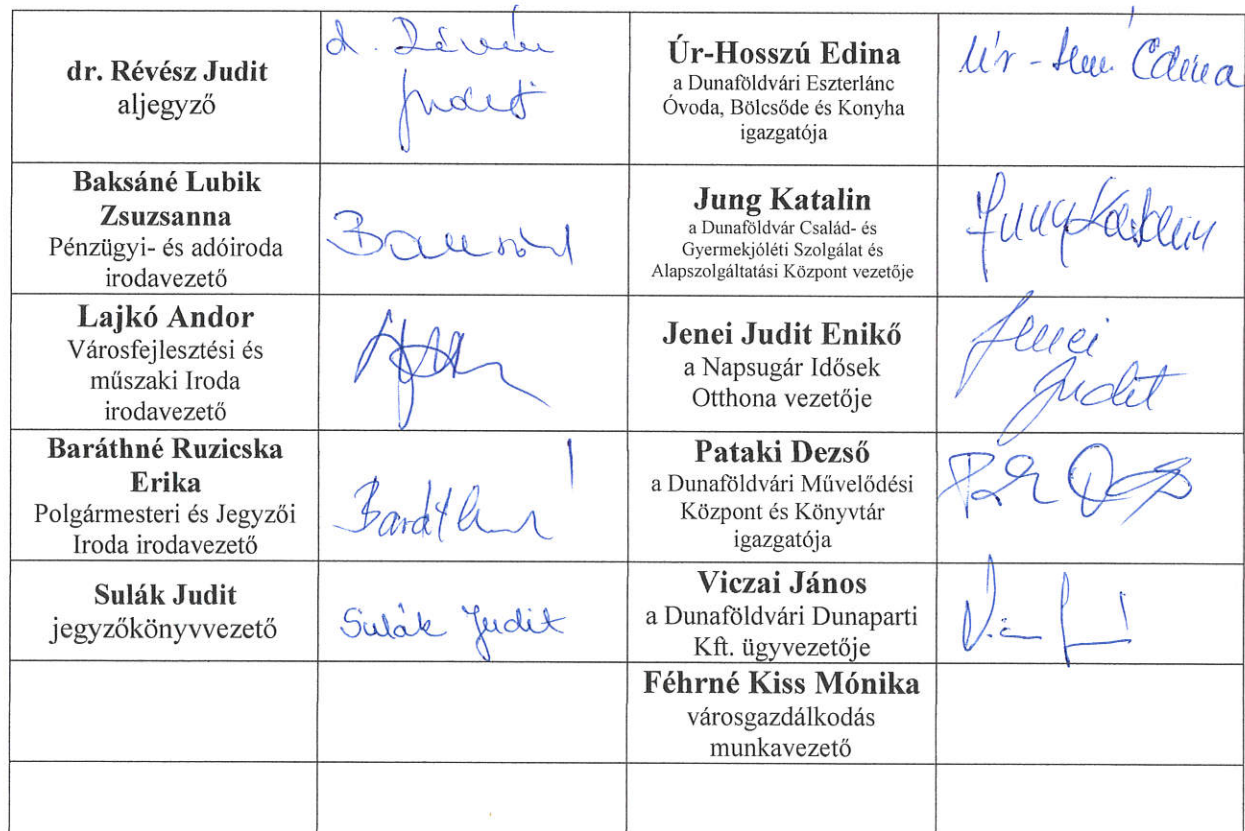 dr. Révész Judit
aljegyző
d. Révész
Judit
Úr-Hosszú Edina
a Dunaföldvári Eszterlánc
Óvoda, Bölcsőde és Konyha
igazgatója
Úr - Edina
Baksáné Lubik
Zsuzsanna
Pénzügyi- és adóiroda
irodavezető
Jung Katalin
a Dunaföldvár Család- és
Gyermekjóléti Szolgálat és
Alapszolgáltatási Központ vezetője
Jung Katalin
Lajkó Andor
Városfejlesztési és
műszaki Iroda
irodavezető
Jenei Judit Enikő
a Napsugár Idősek
Otthona vezetője
Jenei
Judit
Baráthné Ruzicska
Erika
Polgármesteri és Jegyzői
Iroda irodavezető
Baráthné
Pataki Dezső
a Dunaföldvári Művelődési
Központ és Könyvtár
igazgatója
Sulák Judit
jegyzőkönyvvezető
Sulák Judit
Viczai János
a Dunaföldvári Dunaparti
Kft. ügyvezetője
Féhrné Kiss Mónika
városgazdálkodás
munkavezető